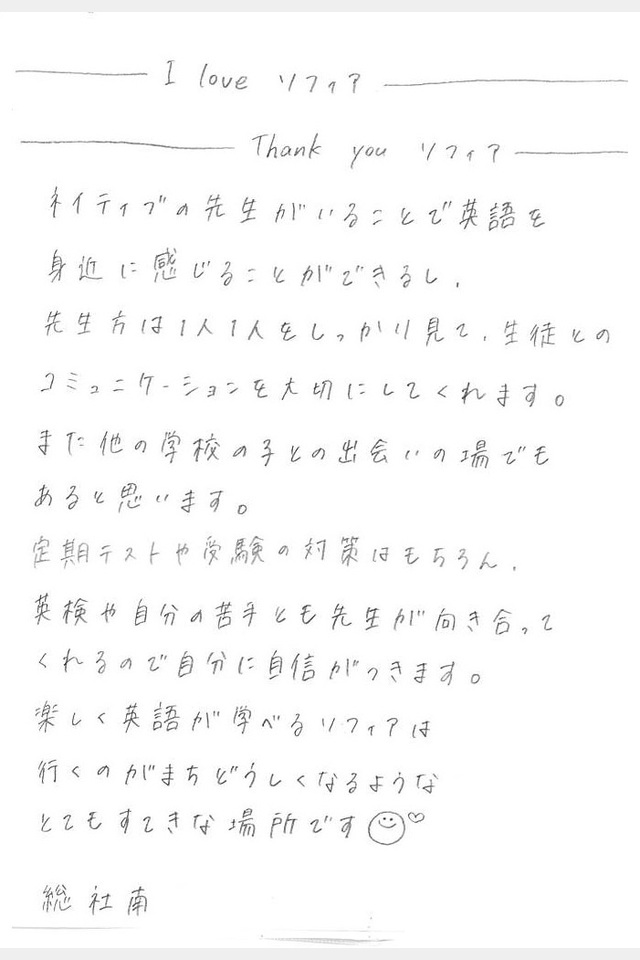 I love ソフィア
Thank you ソフィア
ネイティブの先生がいることで英語を
身近に感じることができるし、
先生方は1人1人をしっかり見て、生徒との
コミュニケーションを大切にしてくれます。
また他の学校の子との出会いの場でも
あると思います。
定期テストや受験の対策はもちろん、
英検や自分の苦手とも先生が向き合って
くれるので自分に自信がつきます。
楽しく英語が学べるソフィアは
行くのがまちどうしくなるような
とてもすてきな場所です
総社南